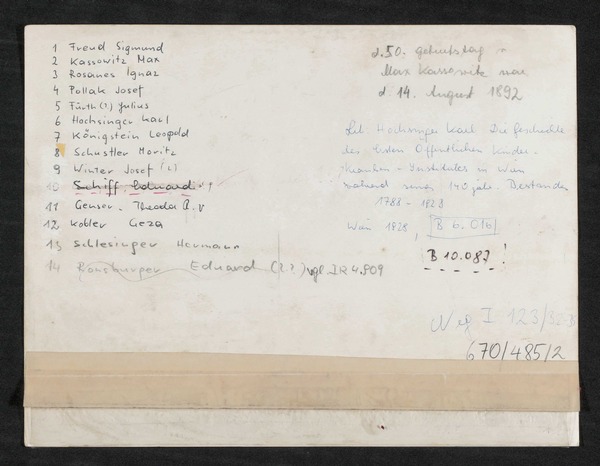 1 Freud Sigmund
2 Kassowitz Max
3 Rosanes Ignaz
4 Pollak Josef
5 Fürth(?) Julius
6 Hochsinger Karl
7 Königstein Leopold
8 Schustler Moritz
9 Winter Josef (?)
10 Schiff Eduard
11 Genser Theodor
12 Kobler Geza
13 Schlesinger Hermann
14 Eduard (??) vgl.
d. 50. Geburtstag
Max Kassowitz war
d. 14. August 1892
Lit. Hochsinger Karl Die Geschichte
des Ersten Öffentlichen Kinder-
Kranken-Institutes in Wien
während seines 140 jähr. Bestandes
1788 - 1928
Wien 1928, B 6.016
B 10.087!
Neg I 123/32-B
670/485/2